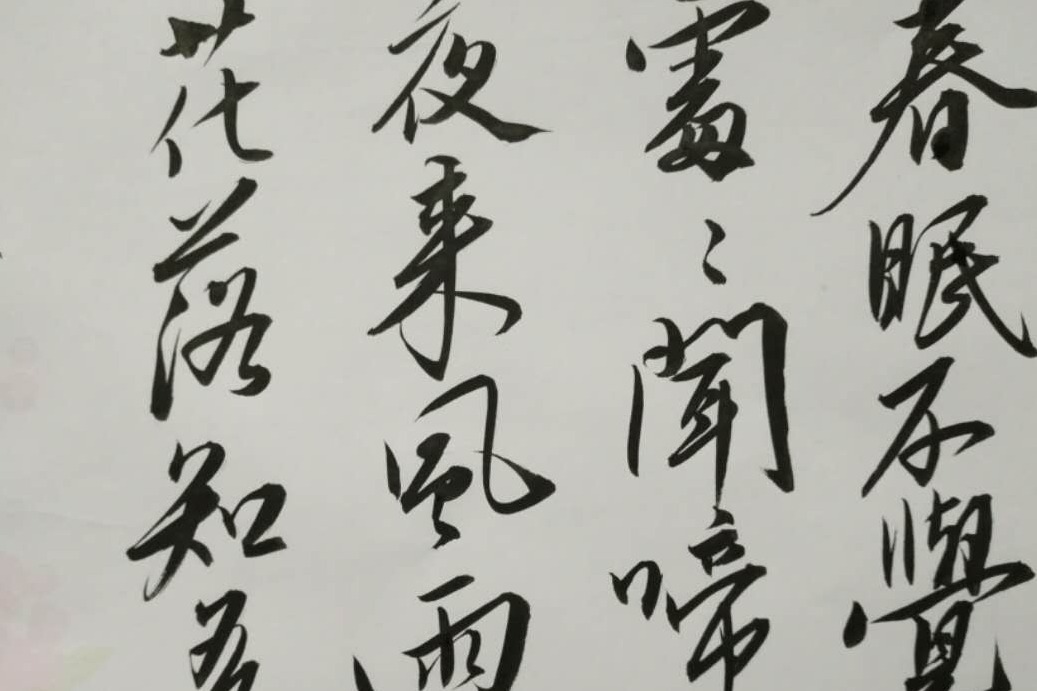 春眠不覺
處〻聞啼
夜来風雨
花落知多